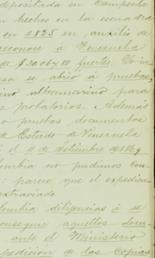 depositada en Campeche
n hechos en la escuadra
en 1825 en auxilio de
reconoce á Venezuela
de $20.069,18 fuertes. To in
sa se abrió á pruebas,
ino ultramarino para
r probatorios. Además
o pruebas documentos
de Estado de Venezuela
el 11 de Setiembre de 18
lombia no pudimos con
parece que el expedien
extraviado.
lombia diligencias á se
onseguir aquellos docu
ante el Ministerio
pedicion de las copias